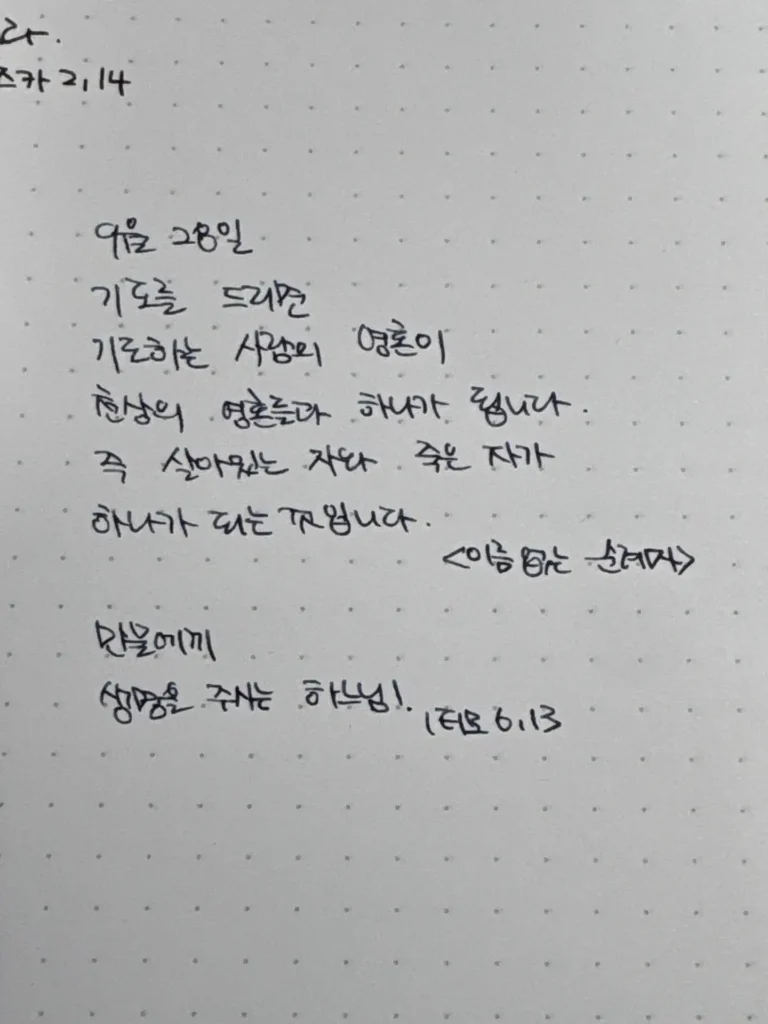 라.
즈카 2,14
9월 28일
기도를 드리면
기도하는 사람의 영혼이
천상의 영혼들과 하나가 됩니다.
즉 살아있는 자와 죽은 자가
하나가 되는 것입니다.
<이름 없는 순례자>
만물에게
생명을 주시는 하느님!
1티모 6,13